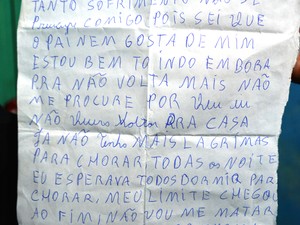 TANTO SOFRIMENTO NÃO SE
COMIGO POIS SEI QUE
O PAI NEM GOSTA DE MIM
ESTOU BEM TO INDO EMBORA
PRA NÃO VOLTA MAIS NÃO
ME PROCURE POR
NÃO PRA CASA
JA NÃO tenho MAIS LAGRIMAS
PARA CHORAR TODAS os NOITE
EU ESPERAVA TODOS DORMIR PAR
CHORAR, MEU LIMITE CHEGOU
AO FIM, NÃO VOU ME MATAR